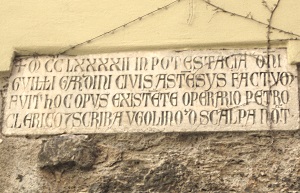 + M CC LXXXXII IN POT ESTACIA DNI
GVILLI GARDINI CIVIS ASTESVS FACTVM
FVIT HOC OPVS EXISTETE OPERARIO PETRO
CLERICO 7 SCRIBA VGOLINO D SCALPA NOT